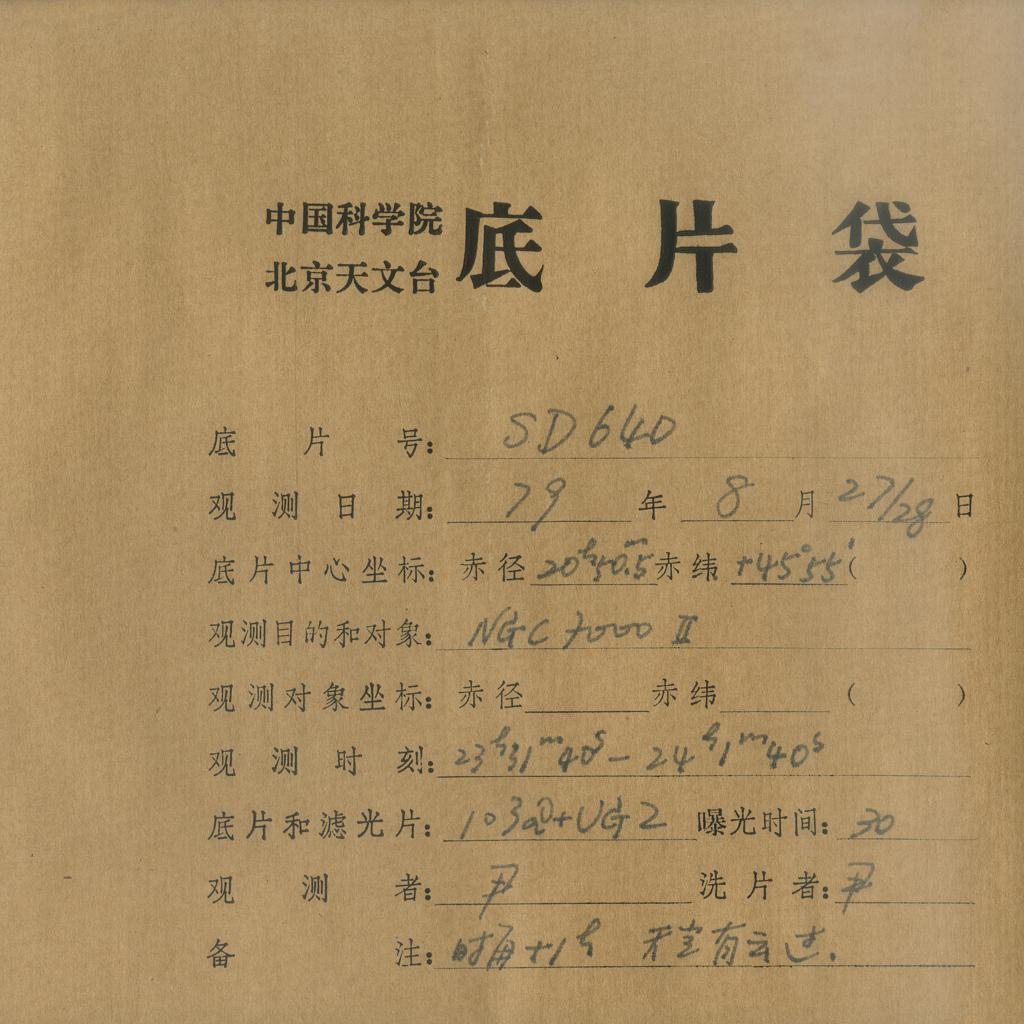 中国科学院
北京天文台
底片袋
底片号: SD640
观测日期: 79年8月27/28日
底片中心坐标: 赤径20ʰ50.5ᵐ赤纬+45°55′( )
观测目的和对象: NGC 7000 II
观测对象坐标: 赤径 赤纬 ( )
观测时刻: 23ʰ31ᵐ40ˢ—24ʰ1ᵐ40ˢ
底片和滤光片: 103aO+UG2 曝光时间: 30
观测者: 尹 洗片者: 尹
备注: 时角+1ʰ 天空有云过.